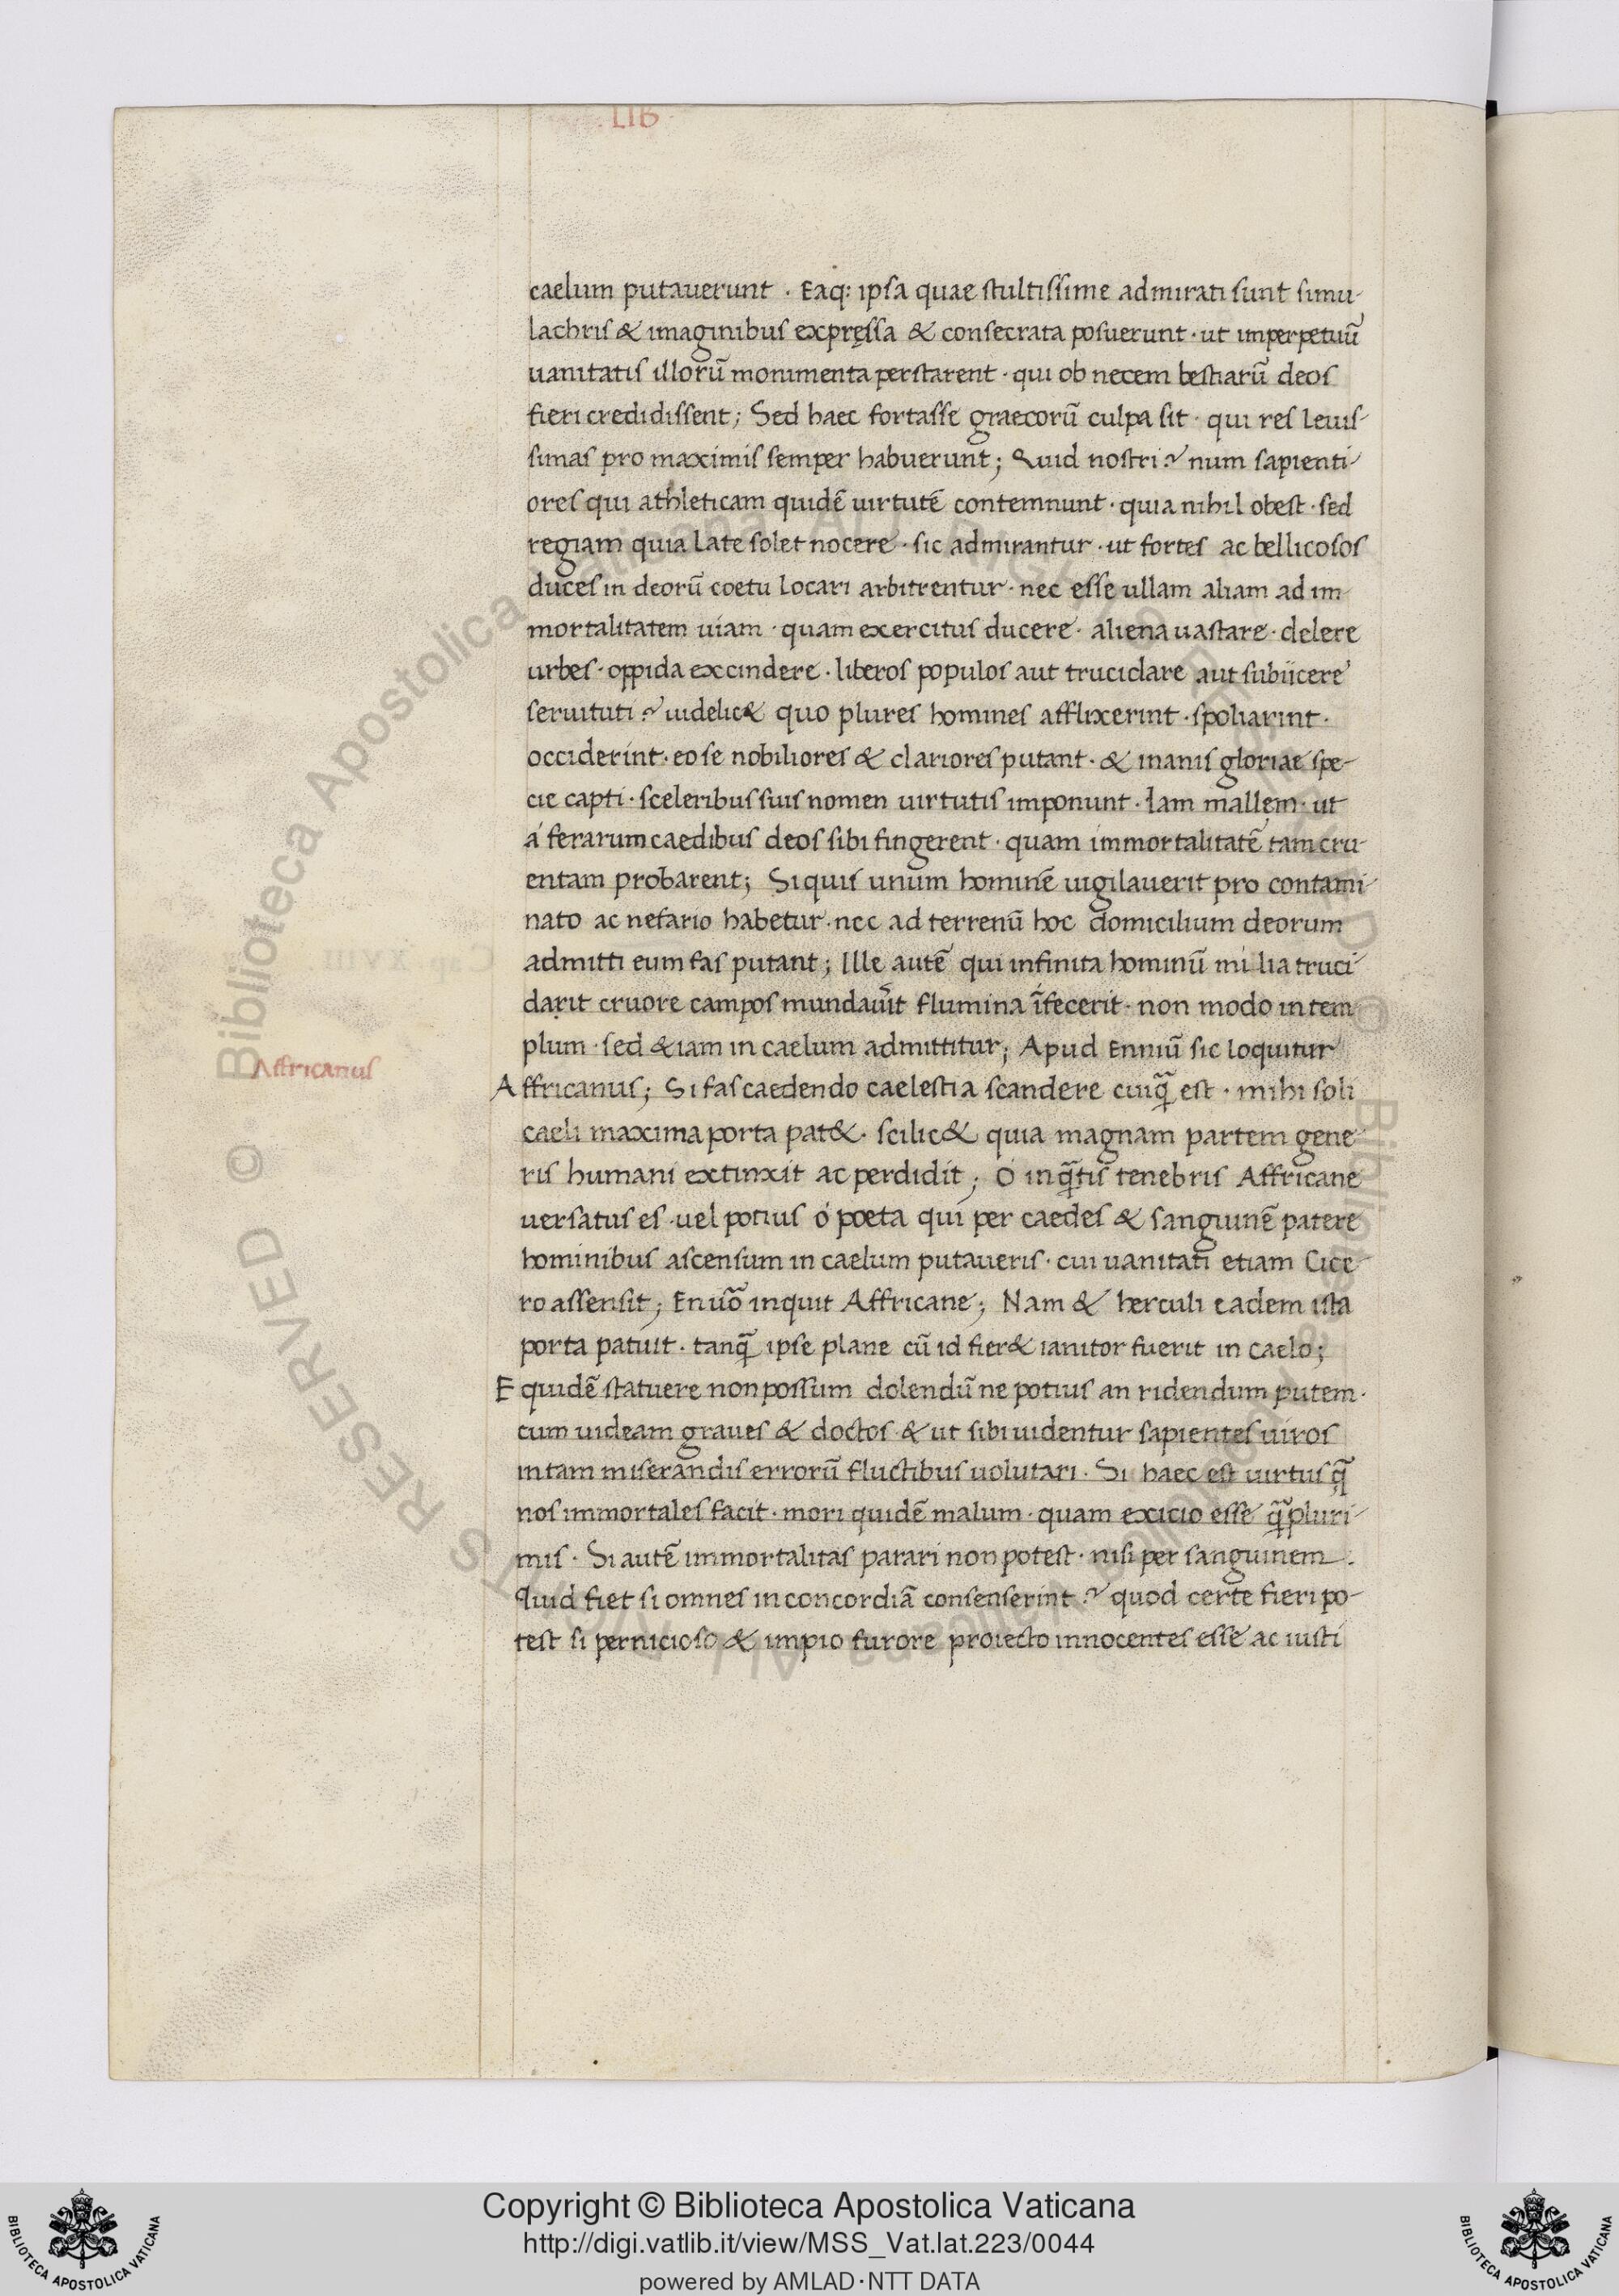 LIB
caelum putauerunt · Eaq: ipsa quae stultissime admirati sunt simu-
lachris & imaginibus expręssa & consecrata posuerunt · ut imperpetuū
uanitatis illorū monimenta perstarent · qui ob necem bestiarū deos
fieri credidissent; Sed haec fortasse graecorū culpa sit · qui res leuis-
simas pro maximis semper habuerunt; Quid nostri? num sapienti-
ores qui athleticam quidē uirtutē contemnunt · quia nihil obest · sed
regiam quia late solet nocere · sic admirantur · ut fortes ac bellicosos
duces in deorū coetu locari arbitrentur · nec esse ullam aliam ad im-
mortalitatem uiam · quam exercitus ducere · aliena uastare · delere
urbes · oppida excindere · liberos populos aut trucidare aut subiicere
seruituti? uidelic& quo plures homines afflixerint · spoliarint ·
occiderint · eo se nobiliores & clariores putant · & inanis gloriae spe-
cie capti · sceleribus suis nomen uirtutis imponunt · Iam mallem · ut
á ferarum caedibus deos sibi fingerent · quam immortalitatē tam cru-
entam probarent; Si quis unum hominē iugilauerit pro contami-
nato ac nefario habetur · nec ad terrenū hoc domicilium deorum
admitti eum fas putant; Ille autē qui infinita hominū milia truci-
darit cruore campos mundauit flumina ifecerit · non modo in tem-
plum · sed &iam in caelum admittitur; Apud Enniū sic loquitur
Affricanus
Affricanus; Si fas caedendo caelestia scandere cuiq̄ est · mihi soli
caeli maxima porta pat& · scilic& quia magnam partem gene-
ris humani extinxit ac perdidit; O in q̄tis tenebris Affricane
uersatus es · uel potius ó poeta qui per caedes & sanguinē patere
hominibus ascensum in caelum putaueris · cui uanitati etiam Cice-
ro assensit; En uō inquit Affricane; Nam & herculi eadem ista
porta patuit · tanq̄ ipse plane cū id fier& ianitor fuerit in caelo;
Equidē statuere non possum dolendū ne potius an ridendum putem ·
cum uideam graues & doctos & ut sibi uidentur sapientes uiros
in tam miserandis errorū fluctibus uolutari · Si haec est uirtus q̄
nos immortales facit · mori quidē malum · quam exicio esse q̄ pluri-
mis · Si autē immortalitas parari non potest · nisi per sanguinem ·
Quid fiet si omnes in concordiā consenserint? quod certe fieri po-
test si pernicioso & impio furore proiecto innocentes esse ac iusti
Copyright © Biblioteca Apostolica Vaticana
http://digi.vatlib.it/view/MSS_Vat.lat.223/0044
powered by AMLAD·NTT DATA
BIBLIOTECA APOSTOLICA VATICANA
BIBLIOTECA APOSTOLICA VATICANA